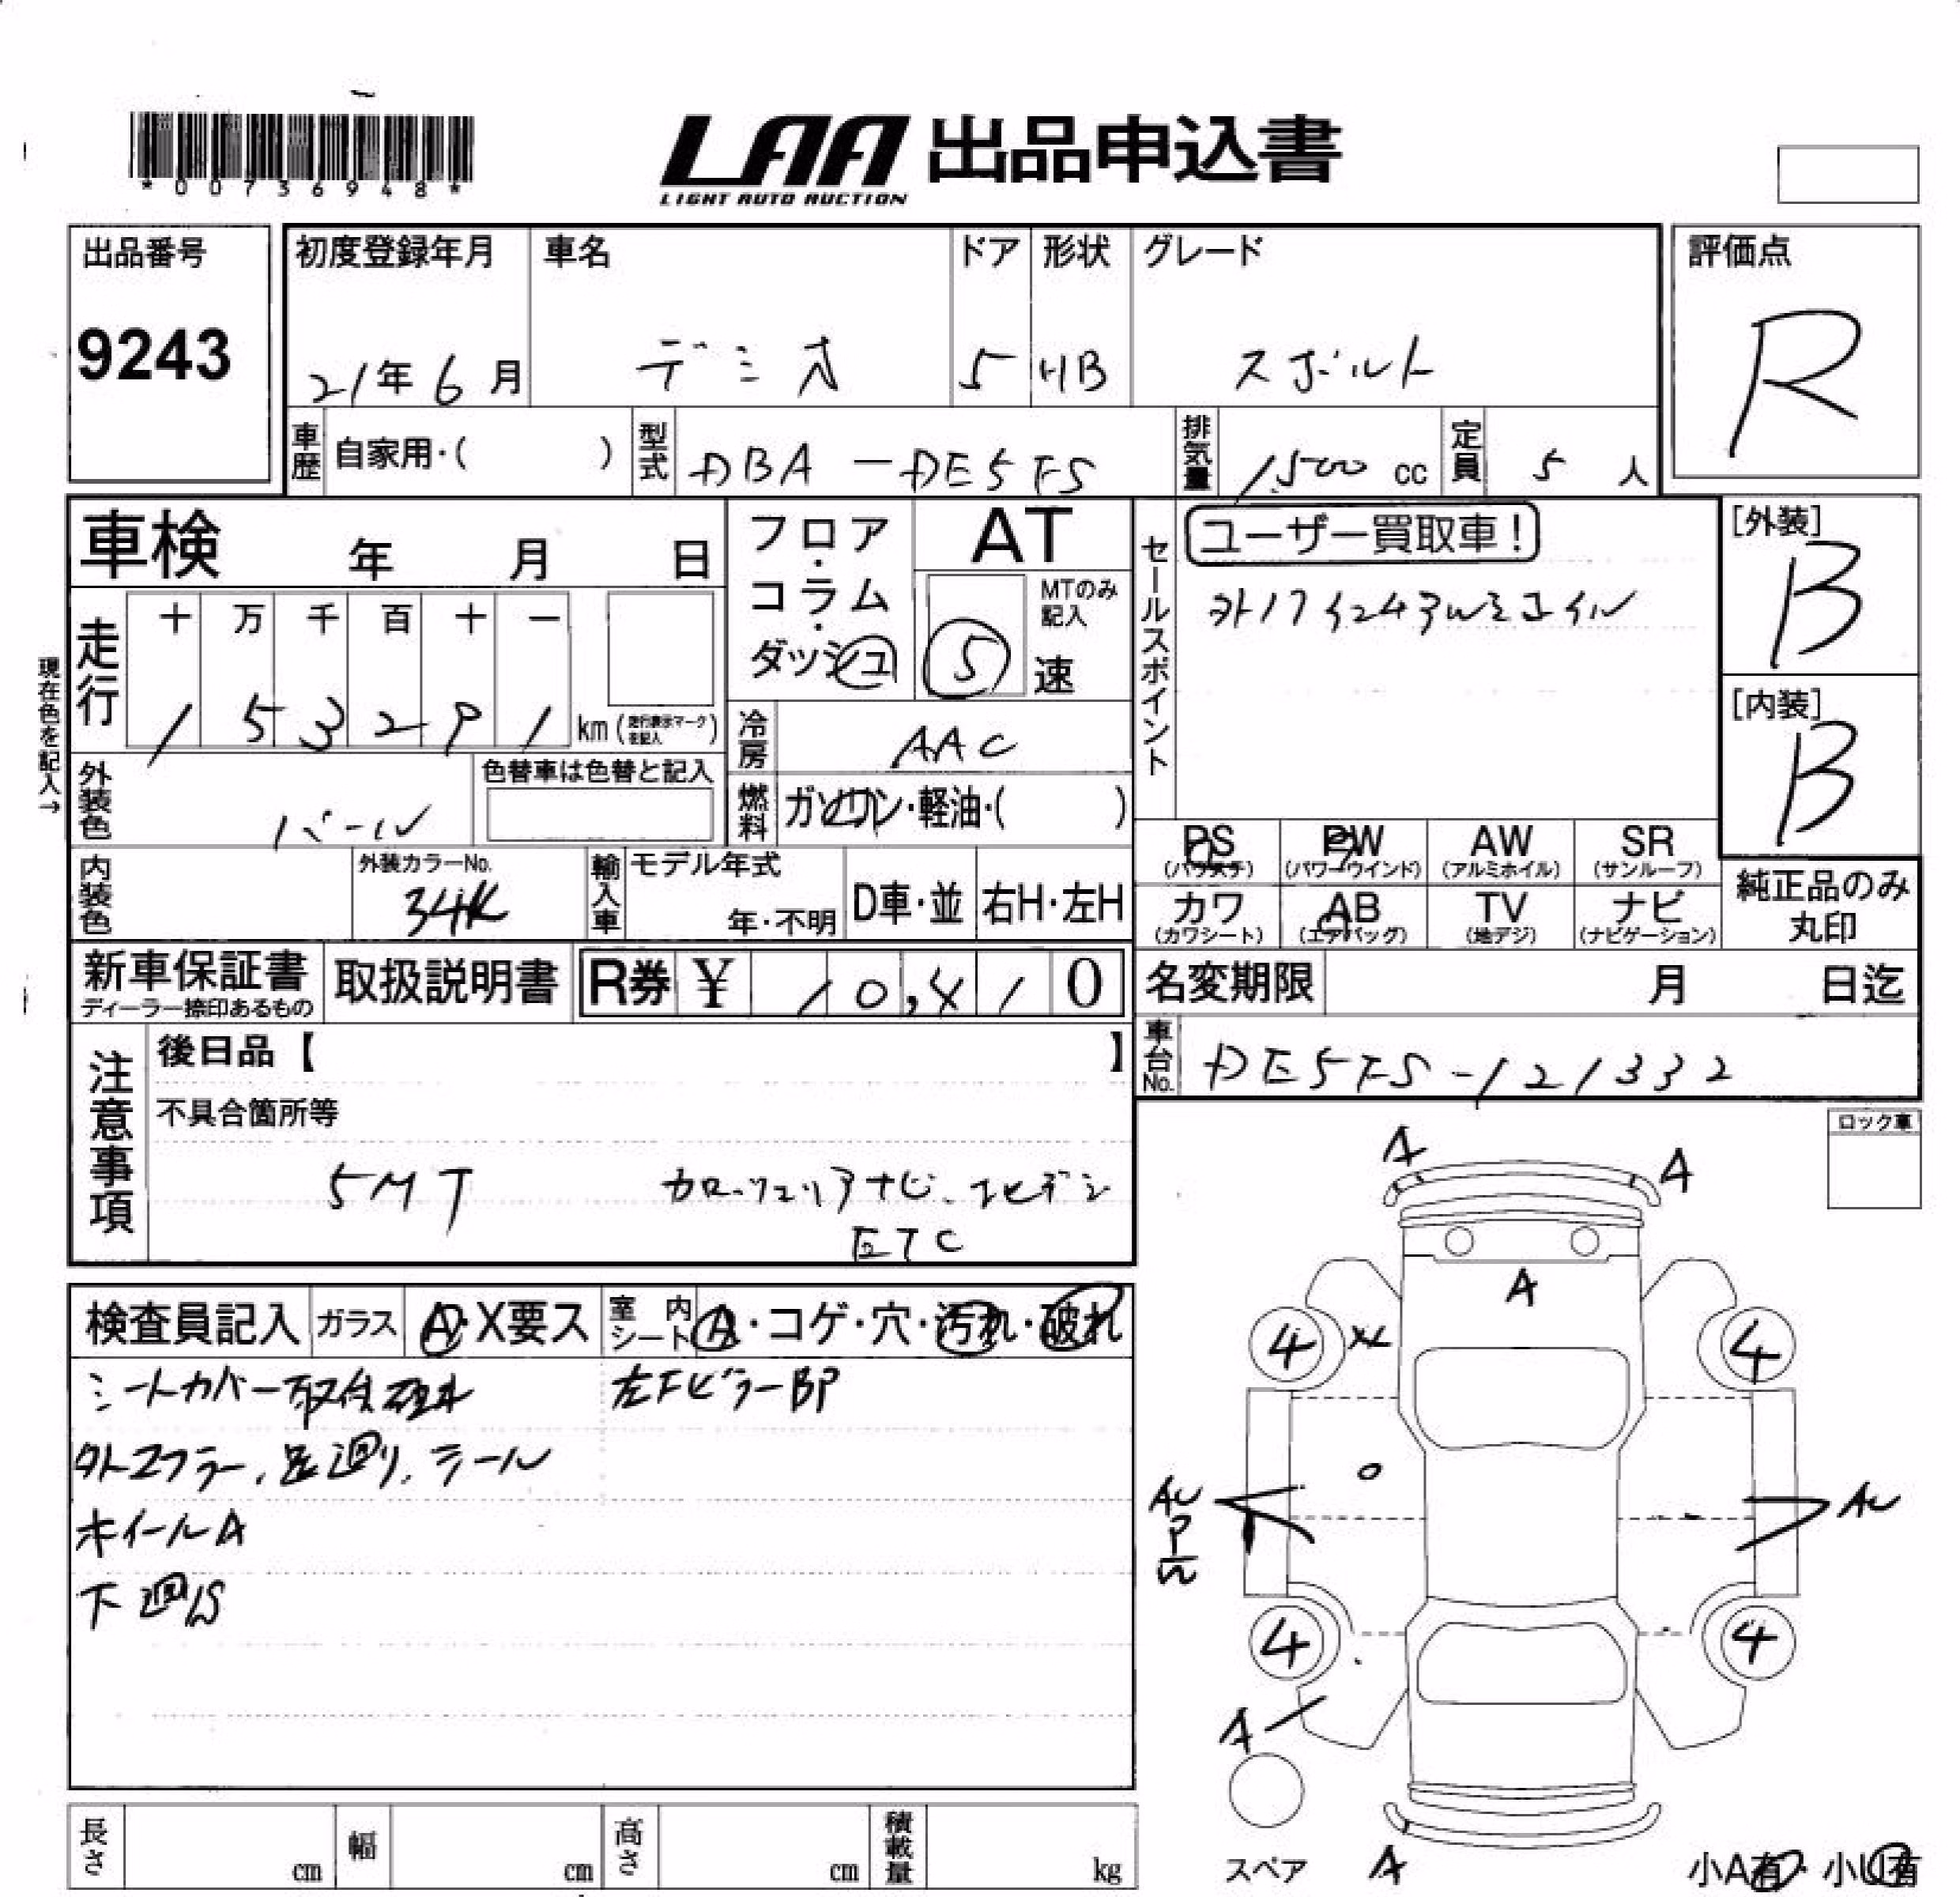 *00736948*
LAA 出品申込書
LIGHT AUTO AUCTION
出品番号
9243
初度登録年月
21年6月
車名
デミオ
ドア
5
形状
HB
グレード
スポルト
評価点
R
車歴 自家用・( )
型式 DBA-DE5FS
排気量 1500 cc
定員 5 人
車検 年 月 日
走行
十 万 千 百 十 一
1 5 3 2 9 1 km
現在色を記入→
フロア・コラム・ダッシュ
AT
MTのみ記入
5 速
冷房 AAC
燃料 ガソリン・軽油・( )
セールスポイント
ユーザー買取車!
[外装]
B
[内装]
B
外装色 パール
色替車は色替と記入
内装色
外装カラーNo.
34K
輸入車
モデル年式
年・不明
D車・並
右H・左H
PS (パワステ)
PW (パワーウインド)
AW (アルミホイル)
SR (サンルーフ)
カワ (カワシート)
AB (エアバッグ)
TV (地デジ)
ナビ (ナビゲーション)
純正品のみ丸印
新車保証書
ディーラー捺印あるもの
取扱説明書
R券 ¥ 10,410
名変期限 月 日迄
車台No. DE5FS-121332
注意事項
後日品【 】
不具合箇所等
5MT カロッツェリアナビ、フルデジ
ETC
ロック車
検査員記入
ガラス A・X要ス
室内シート A・コゲ・穴・汚れ・破れ
シートカバー取付 左Fピラー BP
外マフラー、足廻り、シール
ホイールA
下廻S
A
A
A
4
4
AU
P
AU
4
4
A
A
スペア
小A有・小U有
長さ cm
幅 cm
高さ cm
積載量 kg